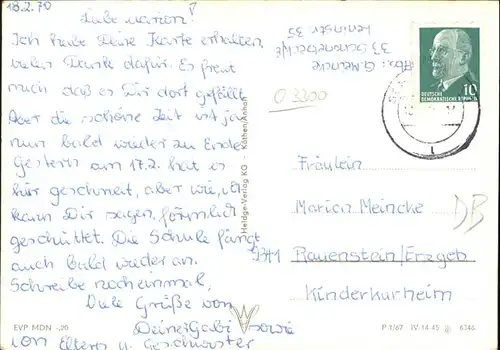 18.2.70
Liebe Marion!
Ich habe Deine Karte erhalten,
vielen Dank dafür. Es freut
mich daß es Dir dort gefällt.
Aber die schöne Zeit ist ja
nun bald wieder zu Ende.
Gestern am 17.2. hat es
hier geschneit, aber wie, ich
kann Dir sagen, förmlich
geschüttet. Die Schule fängt
auch bald wieder an.
Schreibe noch einmal,
Viele Grüße von
Deiner Gabi sowie
von Eltern u. Geschwister
EVP MDN -,20
Heldge-Verlag KG · Köthen/Anhalt
Abs. G. Meincke
33 Schönebeck/E
Leninstr. 35
O-3300
10
DEUTSCHE
DEMOKRATISCHE REPUBLIK
Fräulein
Marion Meincke
DB
9341
Rauenstein/Erzgeb
Kinderkurheim
P 1/67 IV-14-45 6346